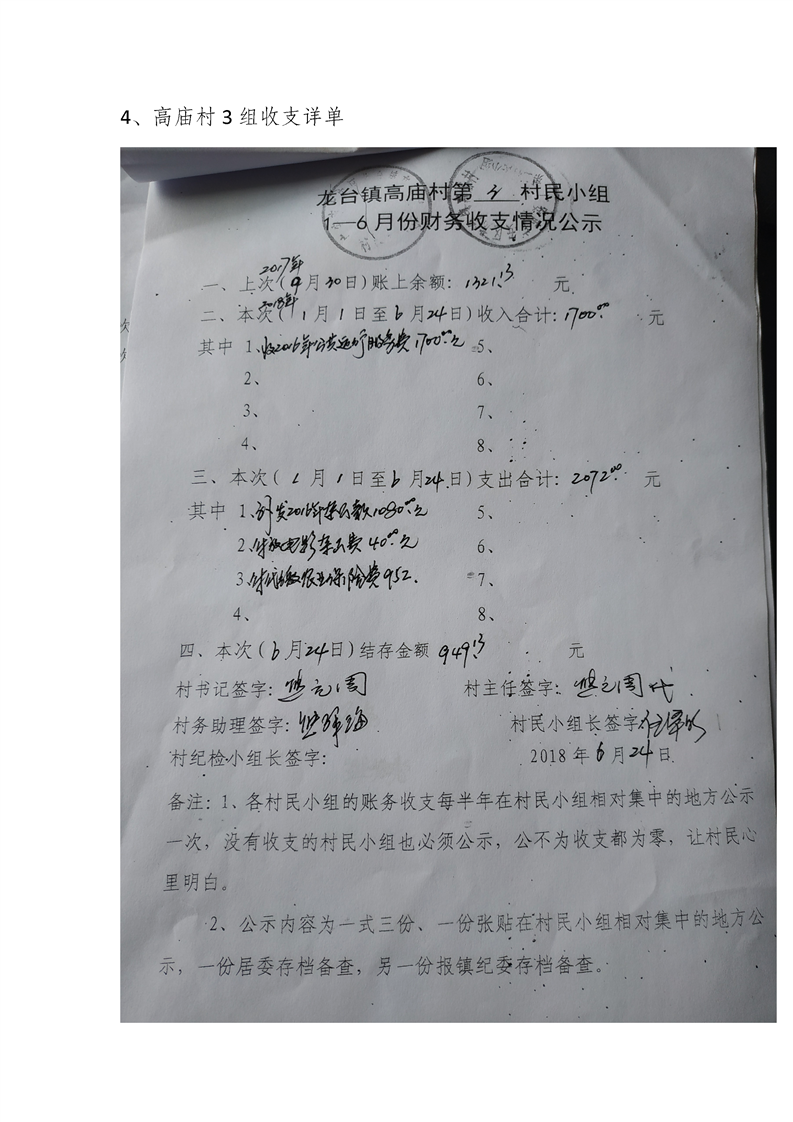 4、高庙村 3 组收支详单
龙台镇高庙村第 3 村民小组
1—6月份财务收支情况公示
2017年
一、上次(9月30日)账上余额: 1321.13 元
2018年
二、本次(1月1日至6月24日)收入合计: 1700.00 元
其中 1、收2016年公共运行服务费1700.00元 5、
2、 6、
3、 7、
4、 8、
三、本次(1月1日至6月24日)支出合计: 2072.00 元
其中 1、 2016年 款1080.00元 5、
2、 电影 费40.00元 6、
3、付代缴农业保险费952. 7、
4、 8、
四、本次(6月24日)结存金额 949.13 元
村书记签字: 村主任签字:
村务助理签字: 村民小组长签字
村纪检小组长签字: 2018年6月24日
备注: 1、各村民小组的账务收支每半年在村民小组相对集中的地方公示
一次,没有收支的村民小组也必须公示,公不为收支都为零,让村民心
里明白。
2、公示内容为一式三份、一份张贴在村民小组相对集中的地方公
示,一份居委存档备查,另一份报镇纪委存档备查。